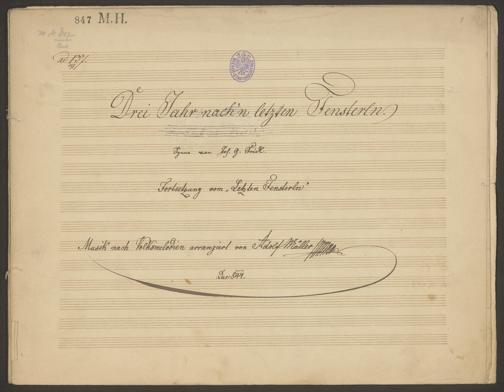 847 M.H.
Drei Jahr nach'n letzten Fensterln.
Scene von Joh. G. Seidl
Fortsetzung vom „Letzten Fensterln"
Musik nach Volksmelodien arrangirt von Adolf Müller